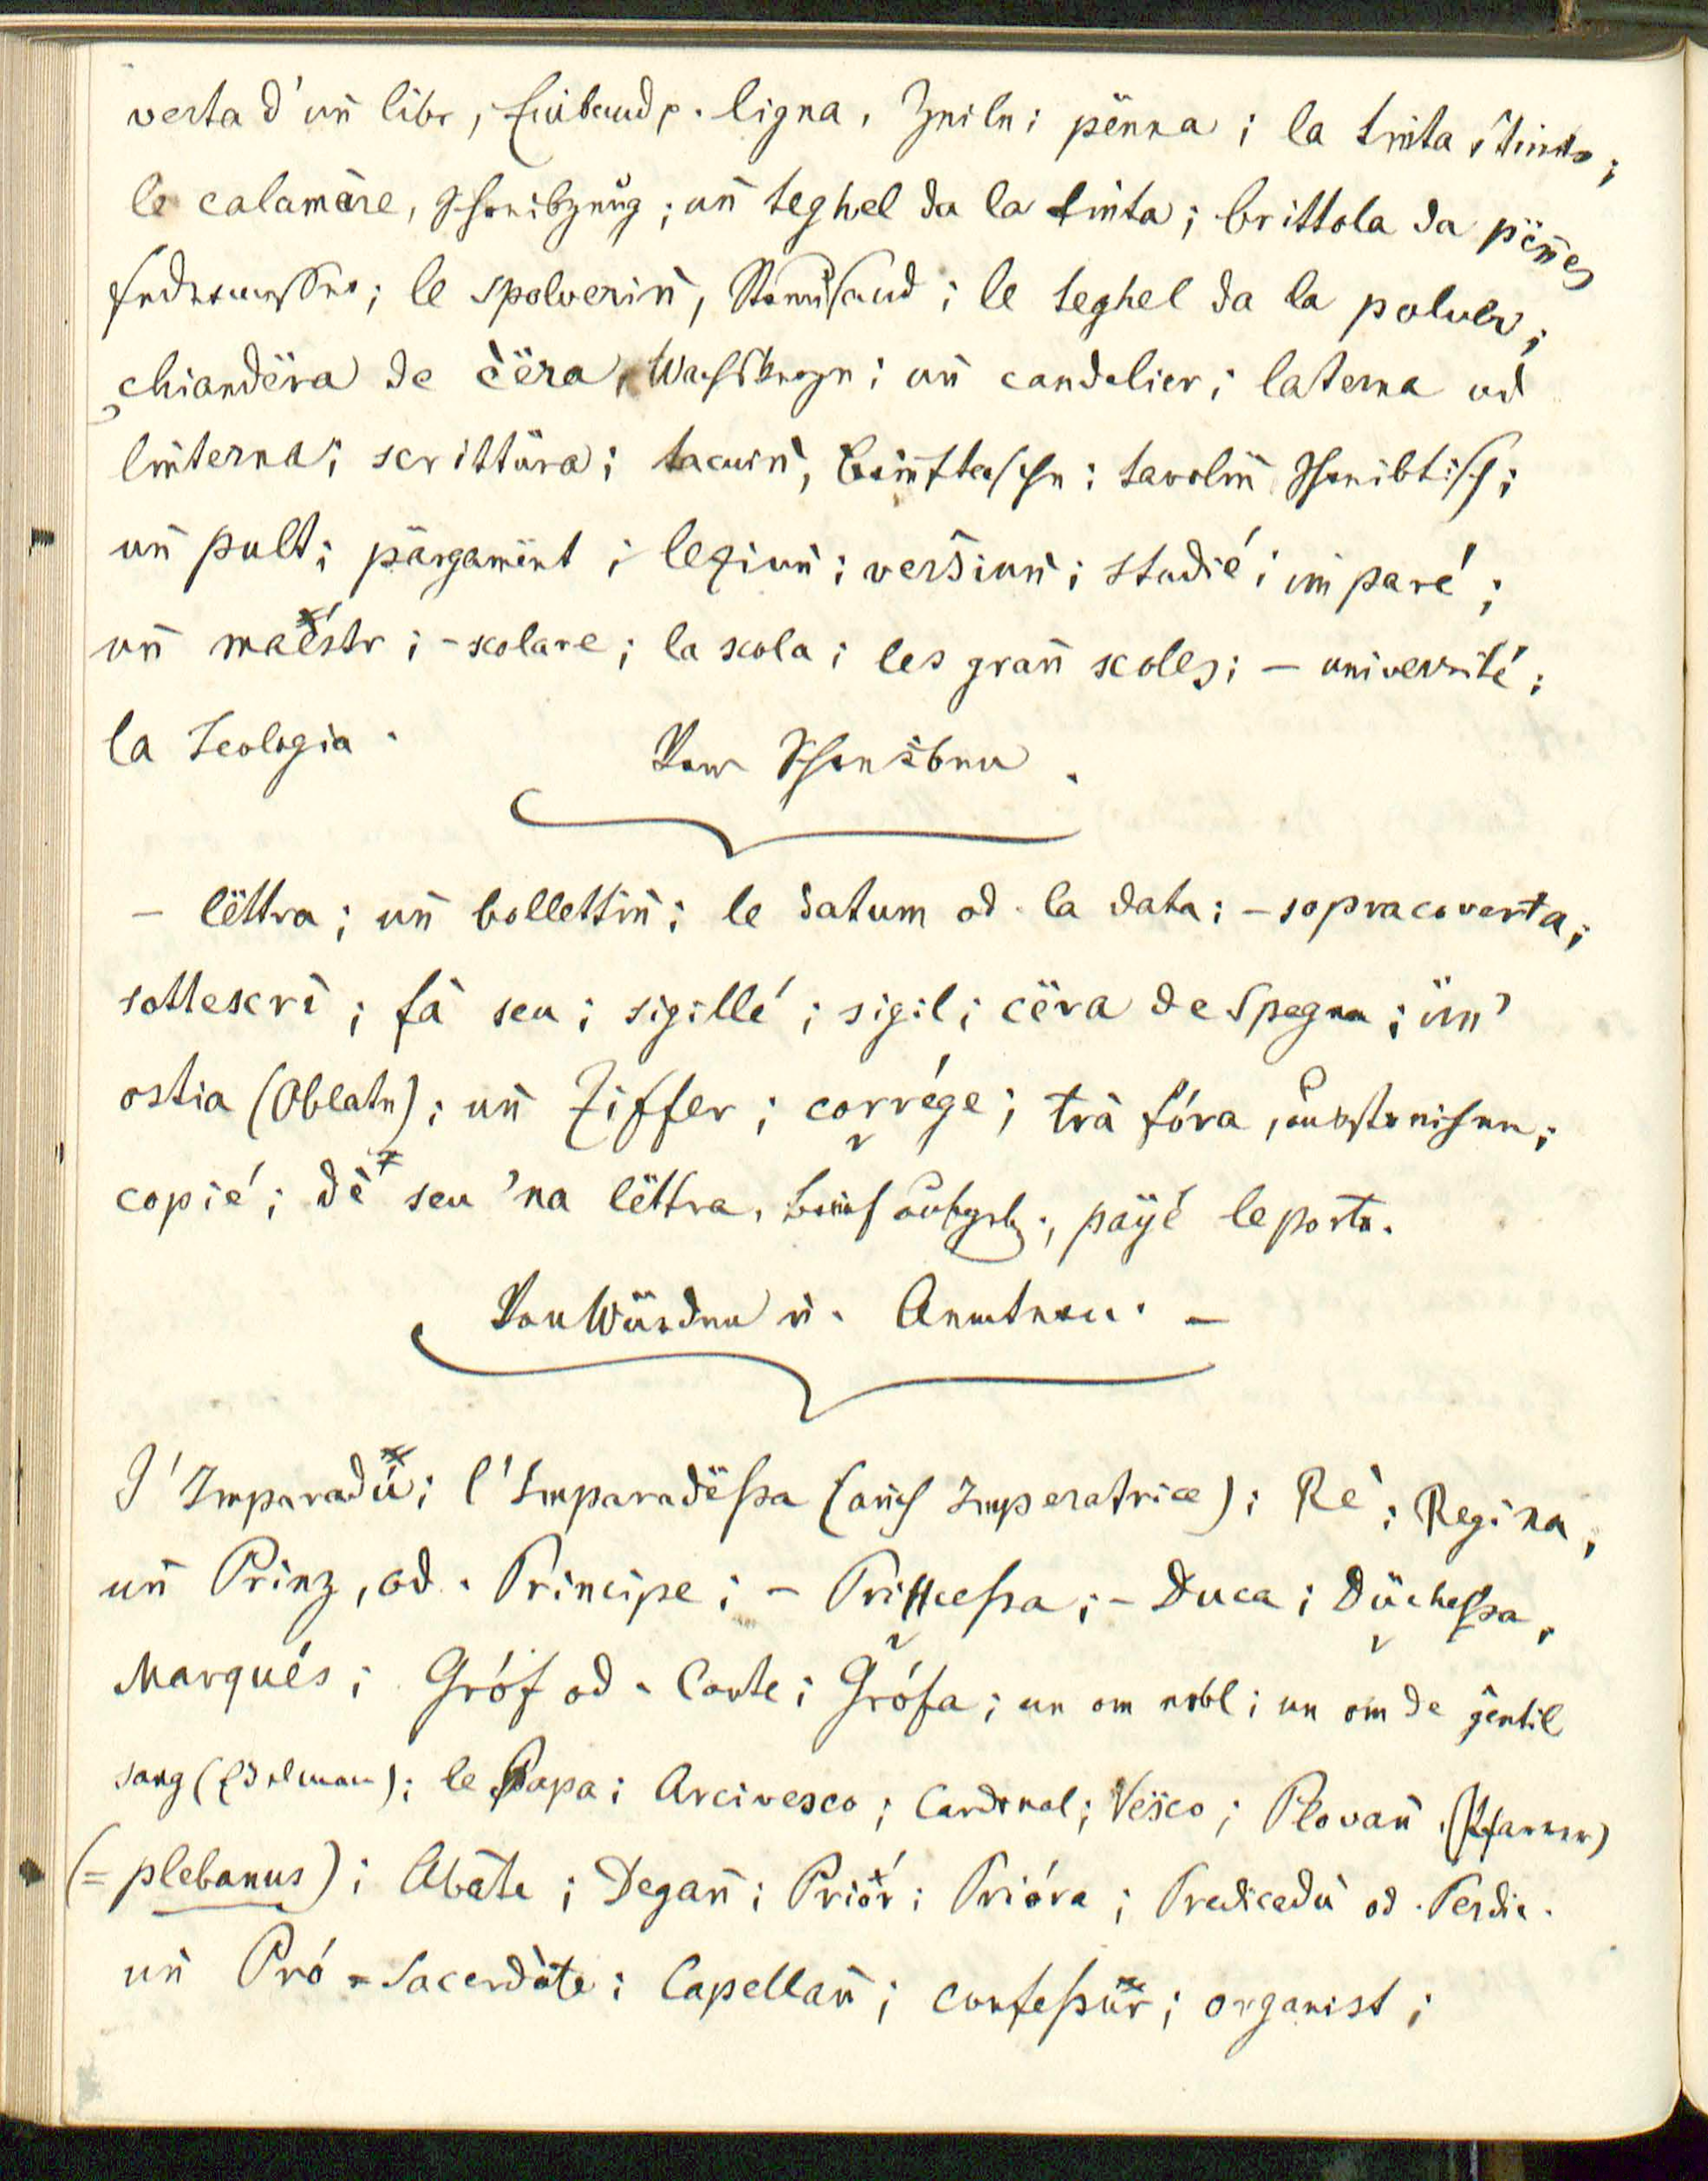 verta d'un̄ libr, Einband p. ligna, Zeile; pënna; la tin̄ta s tinta;
le calamère, Schreibzeug; un̄ teghel da la tin̄ta; brittola da pën̄es
Federmesser; le spolverin̄, Streusand; le teghel da la polver;
chiandëra de cëra, Wachskerze; un̄ candelier; laterna od
lin̄terna; scrittüra; tacuin̄, Brieftasche; tavolin̄ Schreibtisch;
un̄ pult; pärgamënt; leziun̄; versiun̄; studié; im̄paré;
un̄ maéstr; - scolare; la scola; les gran̄ scoles; - université;
la Teologia. Vom Schreiben.
- lëttra; un̄ bollettin̄; le datum od. la data; - sopracoverta;
sottescrì; fà seu; sigillé; sigil; cëra de Spagna; ün'
ostia (Oblate); un̄ Ziffer; corrége; trà fóra, ausstreichen;
copié; dè seu 'na lëttra, Brief aufgeb.; päÿé le porto.
Von Würden u. Aemtern. -
L'Imparadú; l'Imparadëssa (auch Imperatrice); Rè; Regina;
un̄ Prinz, od. Principe; - Principessa; - Duca; Düchessa,
Marqués; Gróf od. Conte; Grófa; un om nobl; un om de gentil
sang (Edelmann); le Papa; Arcivesco; Cardinal; Vësco; Plovan̄ (Pfarrer)
(= plebanus); Abàte; Degan̄; Priór; Prióra; Predicadú od. Perdic.
un̄ Pró = Sacerdòte; Capellan̄; confessur; organist;